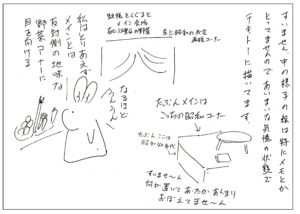 すいません 中の様子の絵は特にメモとか
とってませんので あいまいな気憶の状態で
テキトーに描いてます。
会場をくぐると
メイン会場
右に昭和のお宝
再現コーナー
たぶんメインは
こっちの昭和コーナー
たぶんここは
昭和40年代
すいませ〜ん
何が置いてあったかあんまり
おぼえてませ〜ん
なるほど
うんうん
私はとりあえず
メインとは
反対側の地味な
野菜コーナーに
目を向ける